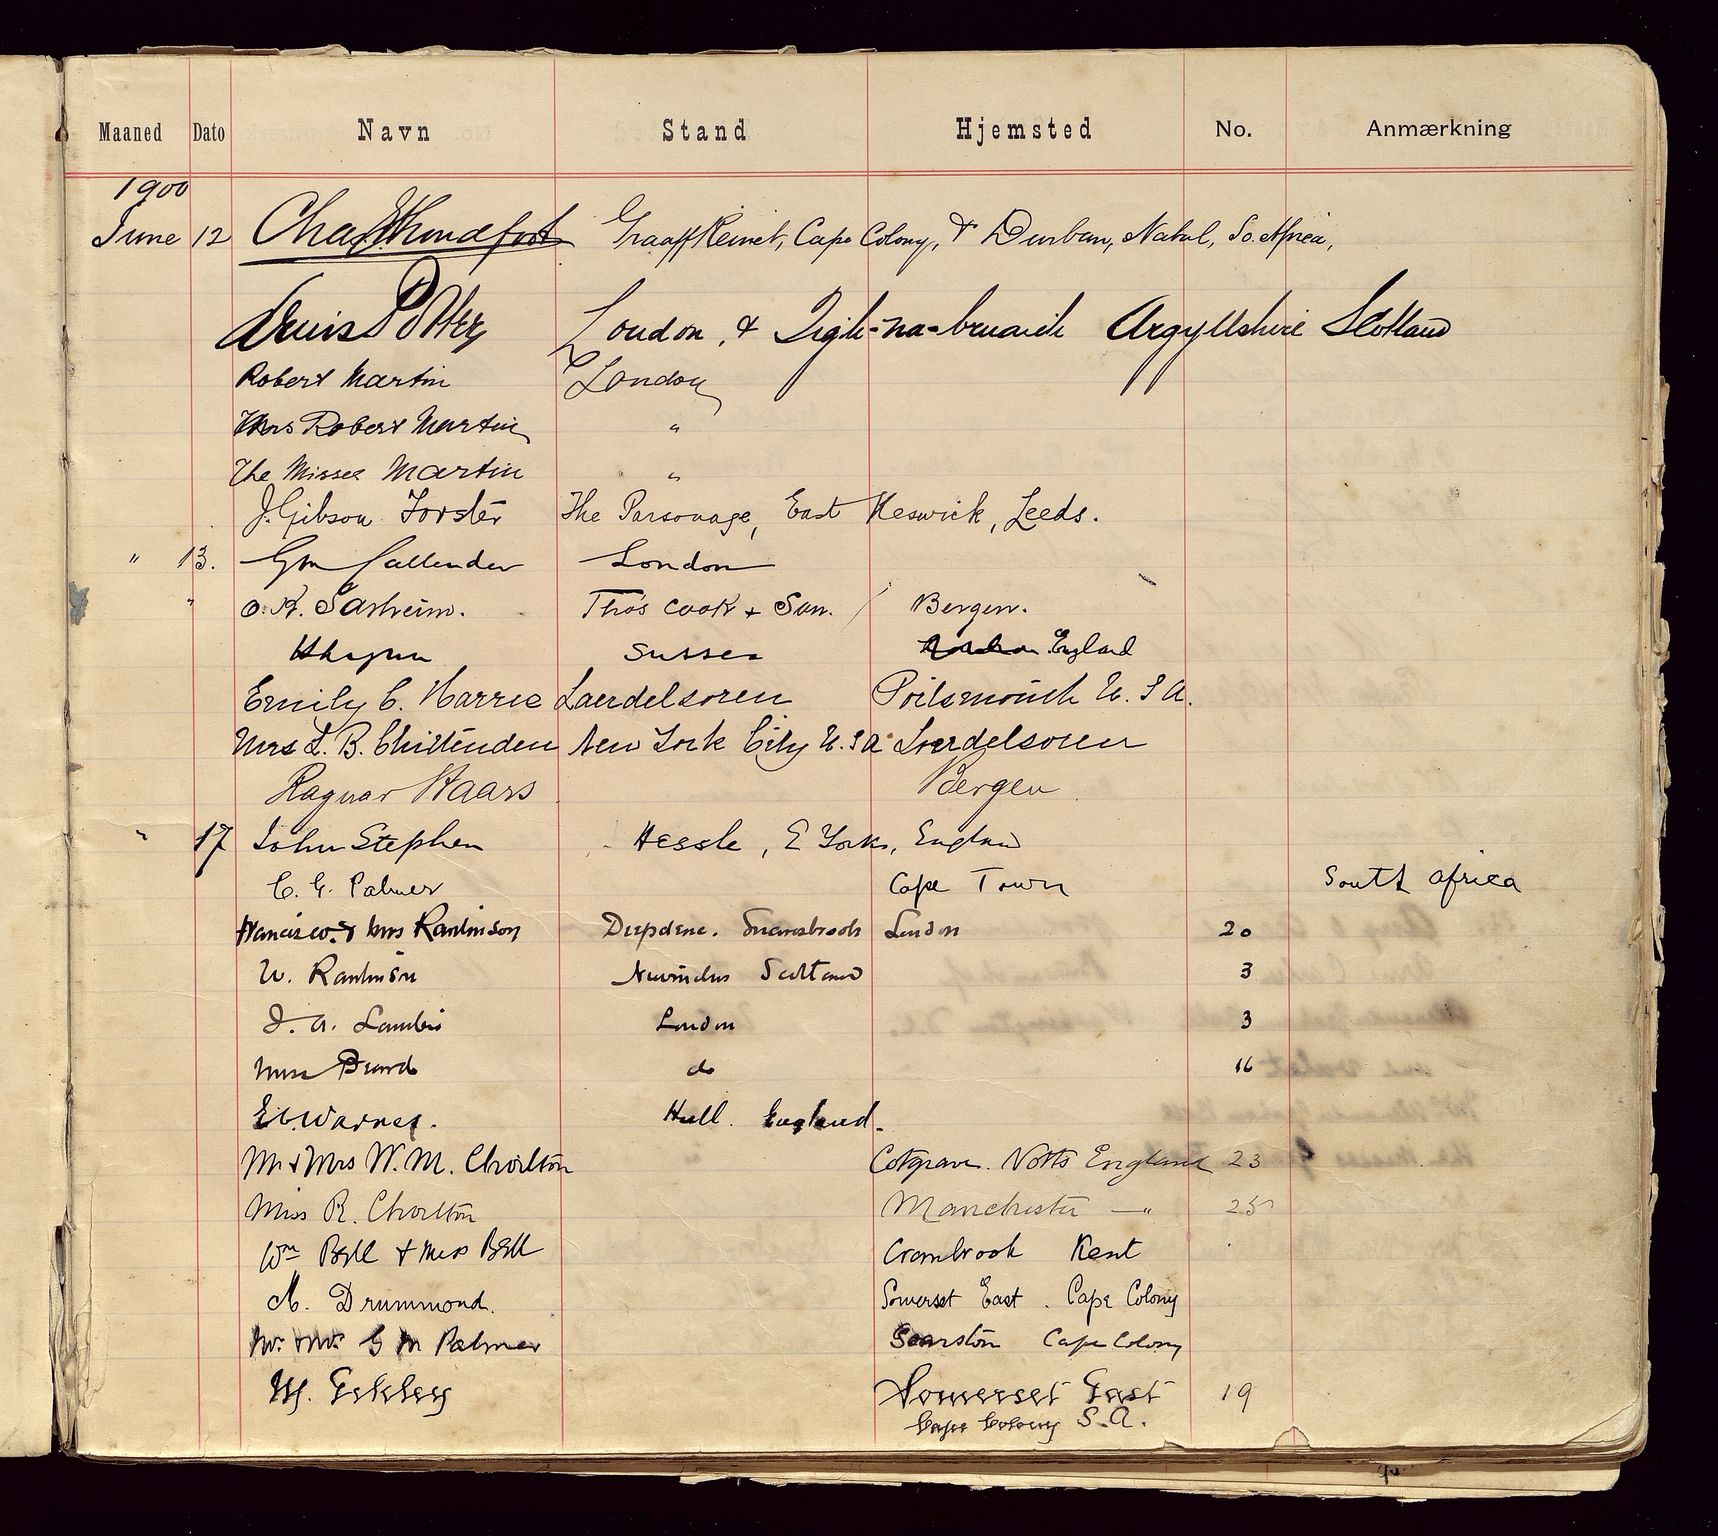 Maaned Dato Navn Stand Hjemsted No. Anmærkning
1900
June 12 Graaff Reinet, Cape Colony, & Durban, Natal, So. Africa,
Potter London, & Tigh-na-bruaich Argyllshire Scotland
Robert Martin London
Mrs Robert Martin "
The Misses Martin "
J. Gibson Forster The Parsonage, East Keswick, Leeds.
" 13. Callender London
" O. K. Thos Cook & Son. Bergen.
Sussex England
Emily C. Harris Laerdelsoren Portsmouth U.S.A.
Mrs L. B. Chittenden New York City U.S.A. Laerdelsoren
Ragnar Haars Bergen
" 17 John Stephen Hessle, E Yorks, England
C. G. Palmer Cape Town South Africa
& Mrs Rawlinson Deepdene. Snaresbrook London 20
W. Rawlinson Scotland 3
London 3
Miss do 16
Hull. England.
Mr & Mrs W. M. Chorlton Cotgrave. Notts England 23
Miss R. Chorlton Manchester — " 25
Wm Bell & Miss Bell Cranbrook Kent
A. Drummond. Somerset East. Cape Colony
Mr. & Mrs. G M Palmer Cape Colony
Somerset East 19
Cape Colony S.A.